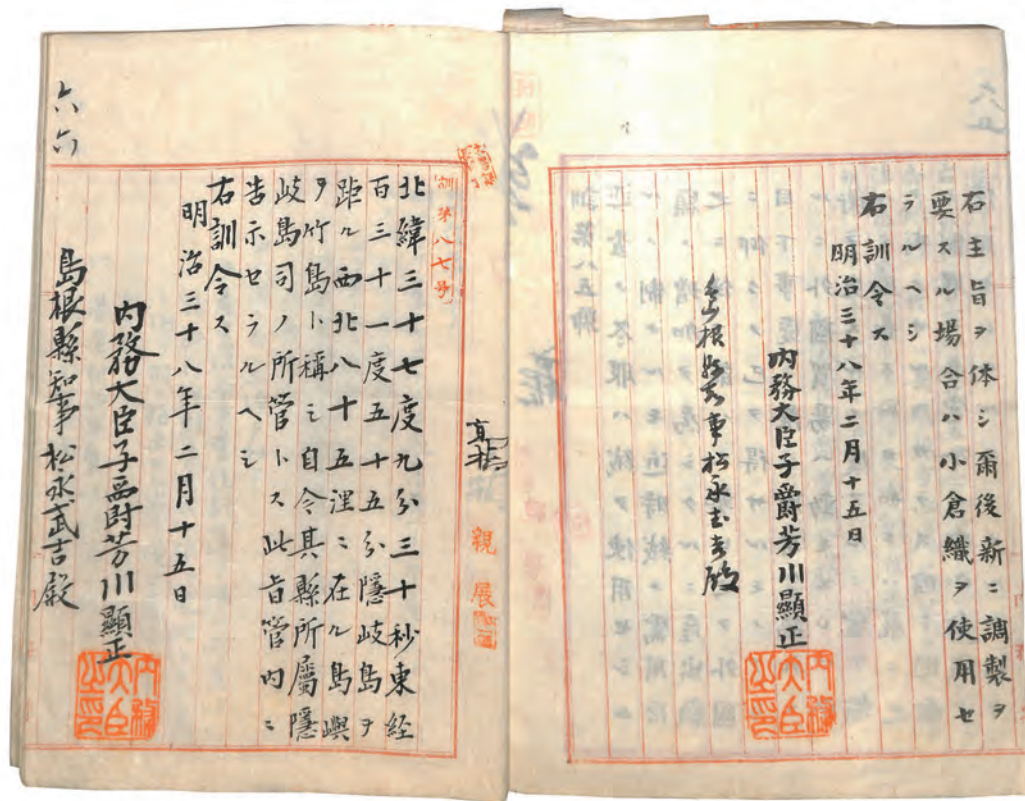 右主旨ヲ体シ爾後新ニ調製ヲ
要スル場合ハ小倉織ヲ使用セ
ラルヘシ
右訓令ス
明治三十八年二月十五日
内務大臣子爵芳川顯正
内務大臣之印
島根縣知事松永武吉殿
六六
訓第八七号
北緯三十七度九分三十秒東経
百三十一度五十五分隠岐島ヲ
距ル西北八十五浬ニ在ル島嶼
ヲ竹島ト稱シ自今其縣所屬隠
岐島司ノ所管トス此旨管内ニ
告示セラルヘシ
右訓令ス
明治三十八年二月十五日
内務大臣子爵芳川顯正
内務大臣之印
島根縣知事松永武吉殿
親展